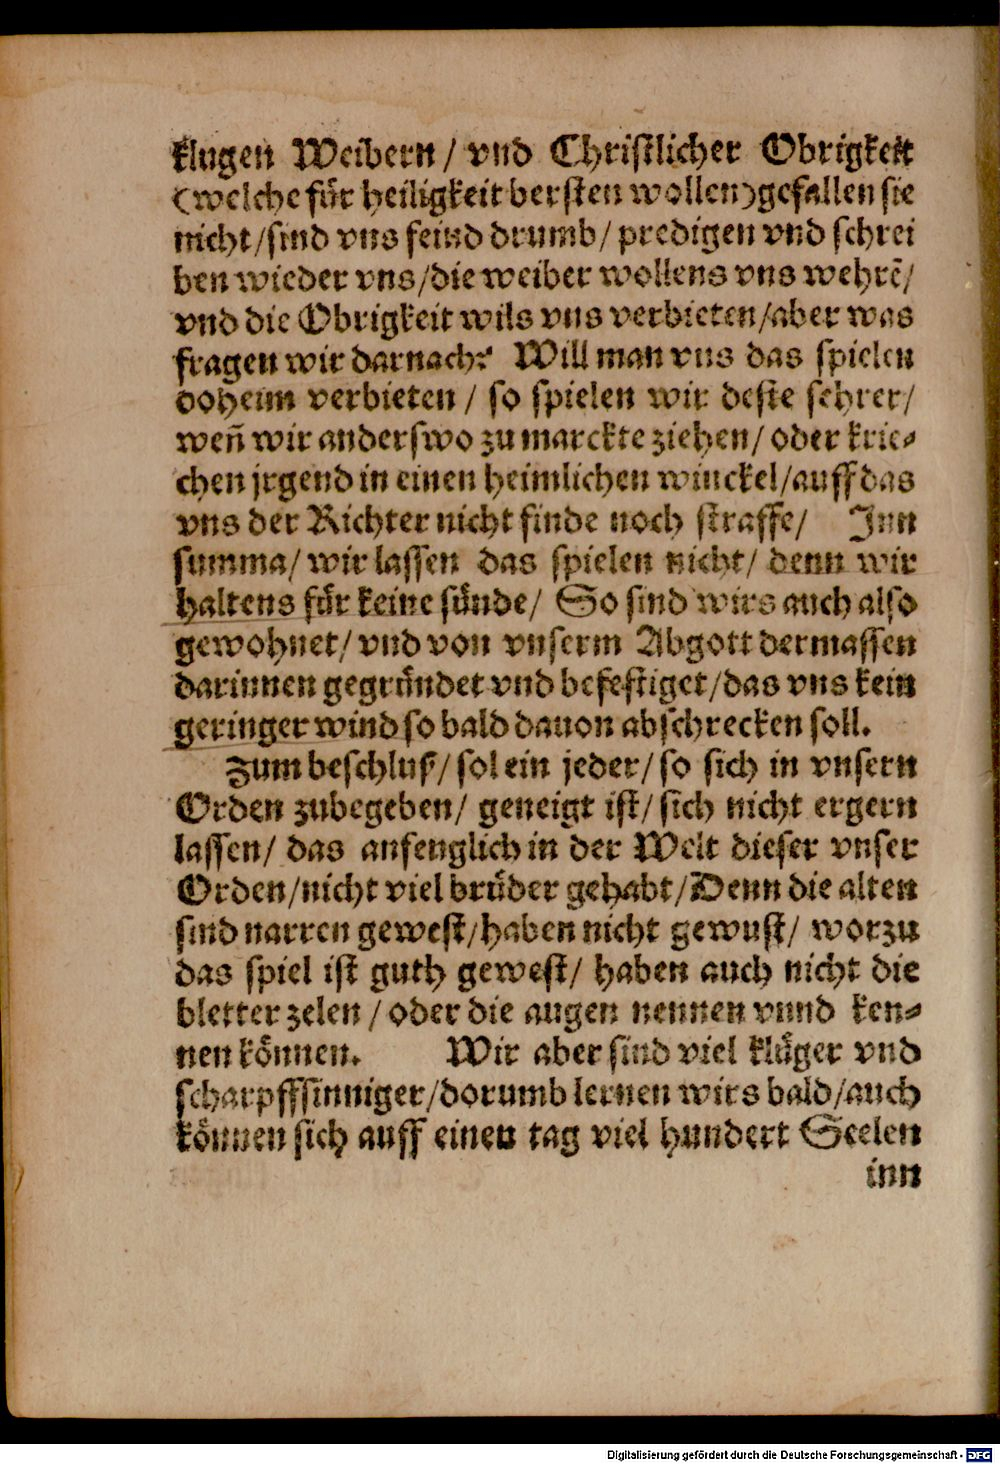 klugen Weibern / vnd Christlicher Obrigkeit
(welche für heiligkeit bersten wollen) gefallen sie
nicht / sind vns feind drumb / predigen vnd schrei
ben wieder vns / die weiber wollens vns wehrẽ /
vnd die Obrigkeit wils vns verbieten / aber was
fragen wir darnach? Will man vns das spielen
doheim verbieten / so spielen wir deste sehrer /
weñ wir anderswo zu marckte ziehen / oder krie-
chen jrgend in einen heimlichen winckel / auff das
vns der Richter nicht finde noch straffe / Jnn
summa / wir lassen das spielen nicht / denn wir
haltens für keine sünde / So sind wirs auch also
gewohnet / vnd von vnserm Abgott dermassen
darinnen gegründet vnd befestiget / das vns kein
geringer wind so bald dauon abschrecken soll.
Zum beschluß / sol ein jeder / so sich in vnsern
Orden zubegeben / geneigt ist / sich nicht ergern
lassen / das anfenglich in der Welt dieser vnser
Orden / nicht viel brüder gehabt / Denn die alten
sind narren gewest / haben nicht gewust / worzu
das spiel ist guth gewest / haben auch nicht die
bletter zelen / oder die augen nennen vnnd ken-
nen können. Wir aber sind viel klüger vnd
scharpffsinniger / dorumb lernen wirs bald / auch
können sich auff einen tag viel hundert Seelen
inn
Digitalisierung gefördert durch die Deutsche Forschungsgemeinschaft - DFG